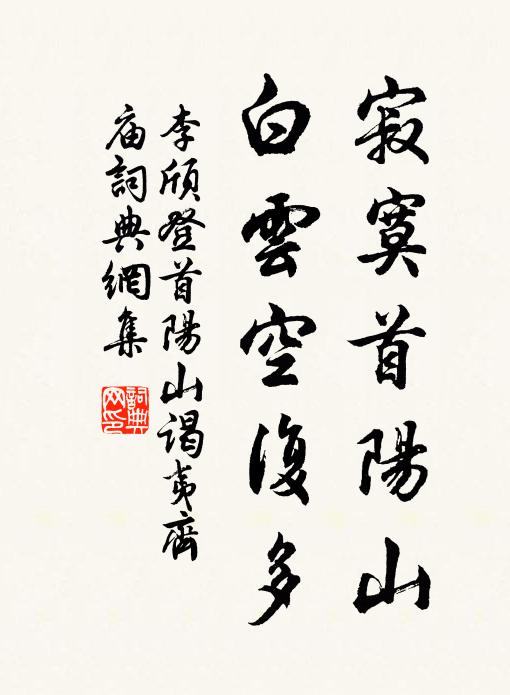 寂寞首陽山
白雲空復多
李頎登首陽山謁夷齊
庙詞典網集
詞典
网印